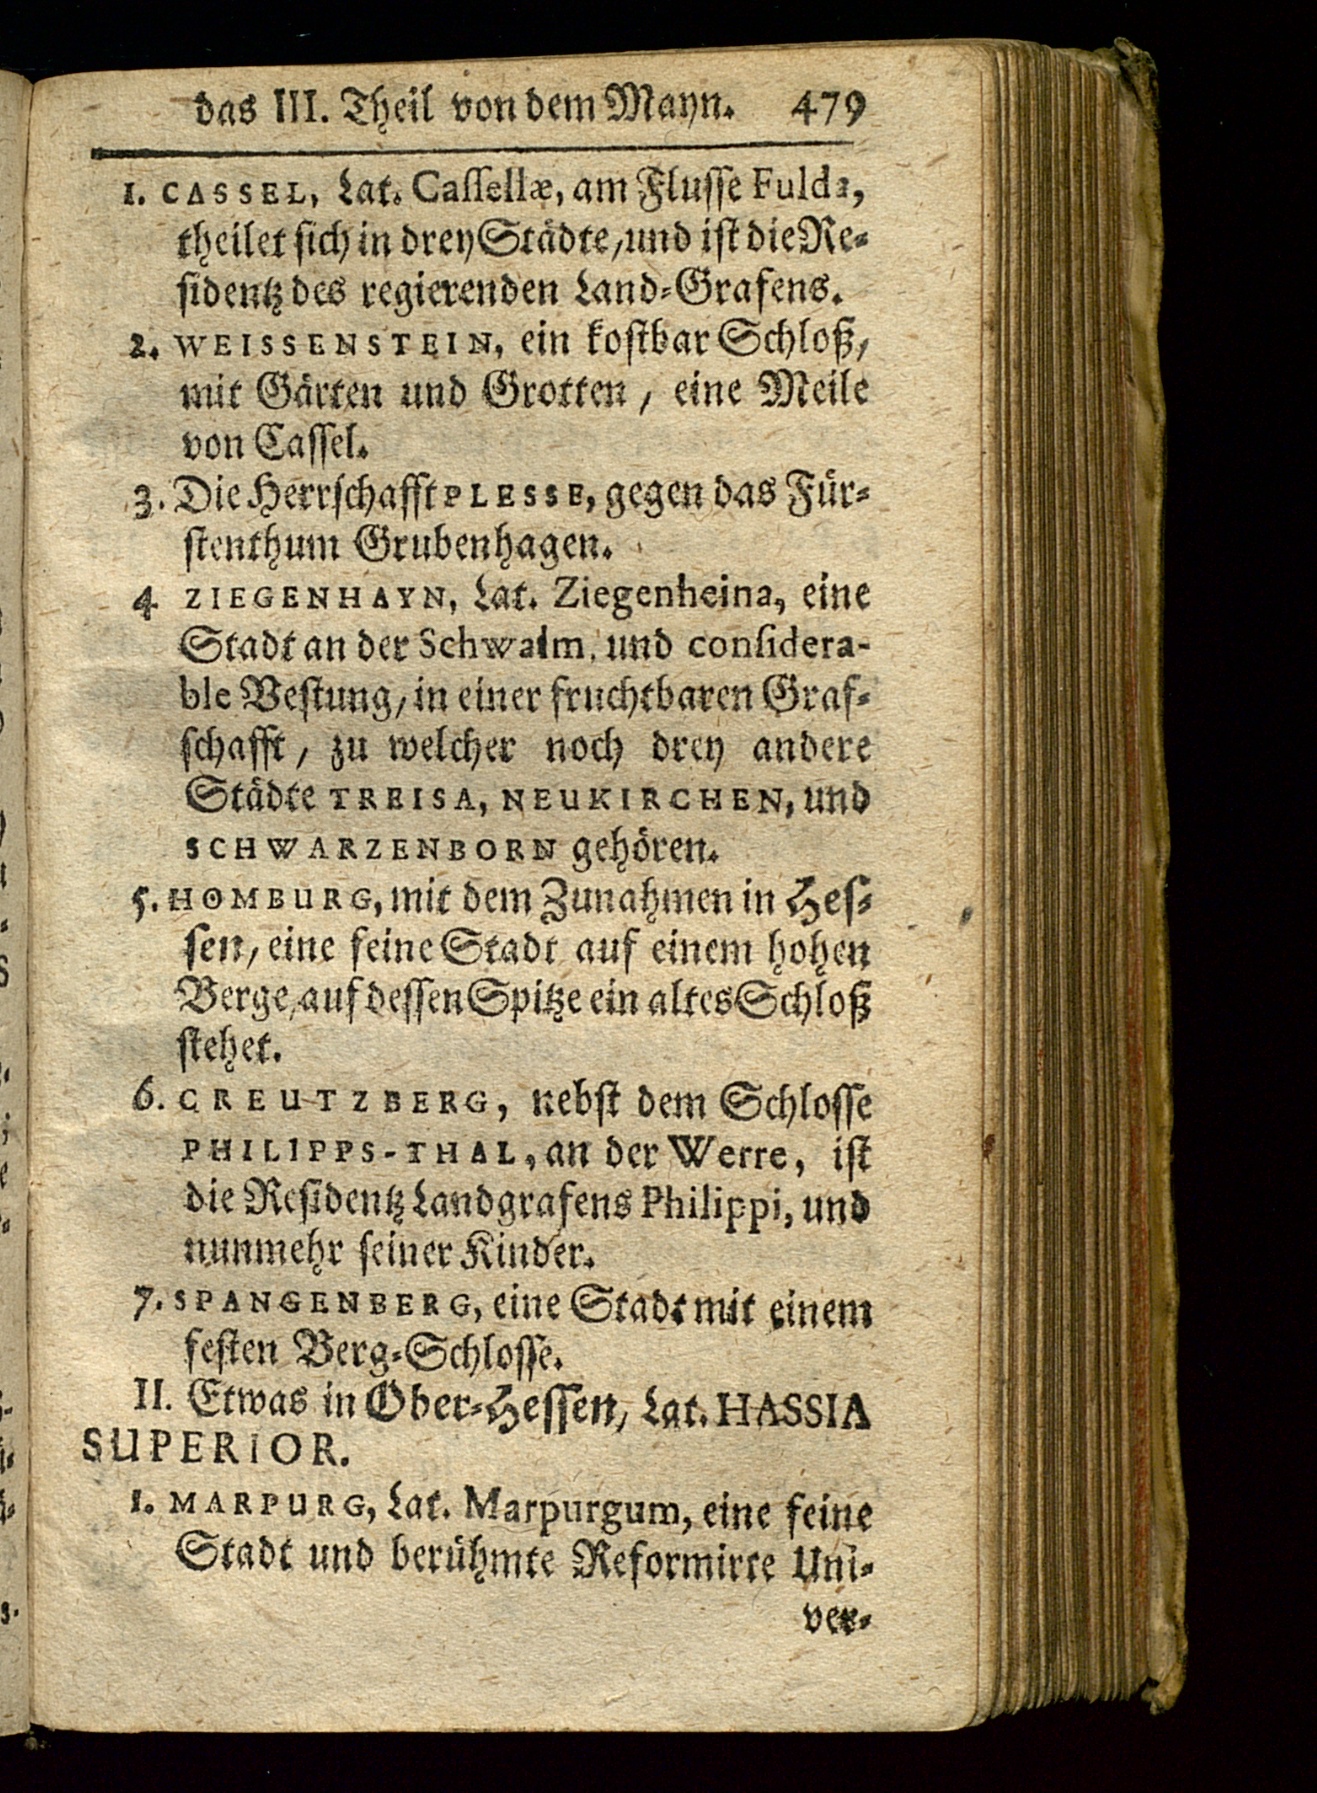 das III. Theil von dem Mayn. 479
1. CASSEL, Lat. Cassellæ, am Flusse Fulda,
theilet sich in drey Städte, und ist die Re-
sidentz des regierenden Land-Grafens.
2. WEISSENSTEIN, ein kostbar Schloß,
mit Gärten und Grotten, eine Meile
von Cassel.
3. Die Herrschafft PLESSE, gegen das Für-
stenthum Grubenhagen.
4 ZIEGENHAYN, Lat. Ziegenheina, eine
Stadt an der Schwalm, und considera-
ble Vestung, in einer fruchtbaren Graf-
schafft, zu welcher noch drey andere
Städte TREISA, NEUKIRCHEN, und
SCHWARZENBORN gehören.
5. HOMBURG, mit dem Zunahmen in Hes-
sen, eine feine Stadt auf einem hohen
Berge, auf dessen Spitze ein altes Schloß
stehet.
6. CREUTZBERG, nebst dem Schlosse
PHILIPPS-THAL, an der Werre, ist
die Residentz Landgrafens Philippi, und
nunmehr seiner Kinder.
7. SPANGENBERG, eine Stadt mit einem
festen Berg-Schlosse.
II. Etwas in Ober-Hessen, Lat. HASSIA
SUPERIOR.
1. MARPURG, Lat. Marpurgum, eine feine
Stadt und berühmte Reformirte Uni-
ver-